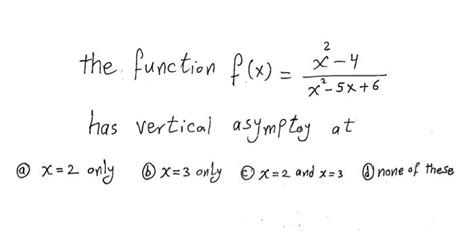 the function f(x) = x² - 4 / x² - 5x + 6
has vertical asymptoy at
ⓐ x = 2 only ⓑ x = 3 only ⓒ x = 2 and x = 3 ⓓ none of these